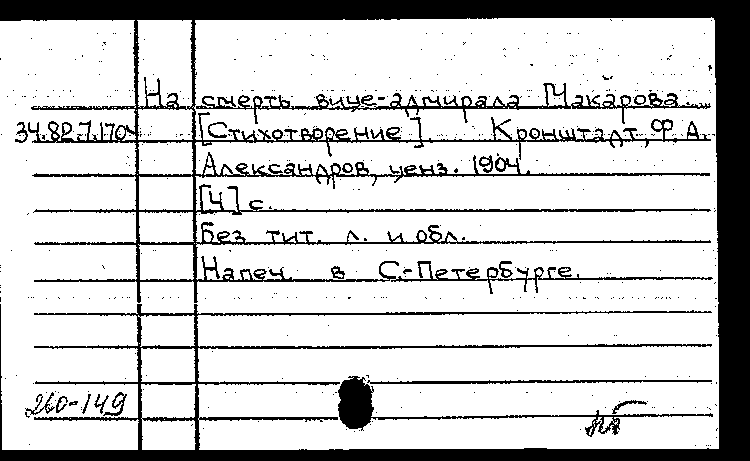 На смерть вице-адмирала Макарова.
34.82.7.170 [Стихотворение]. Кронштадт, Ф. А.
Александров, ценз. 1904.
[4] с.
Без тит. л. и обл.
Напеч. в С.-Петербурге.
260-149